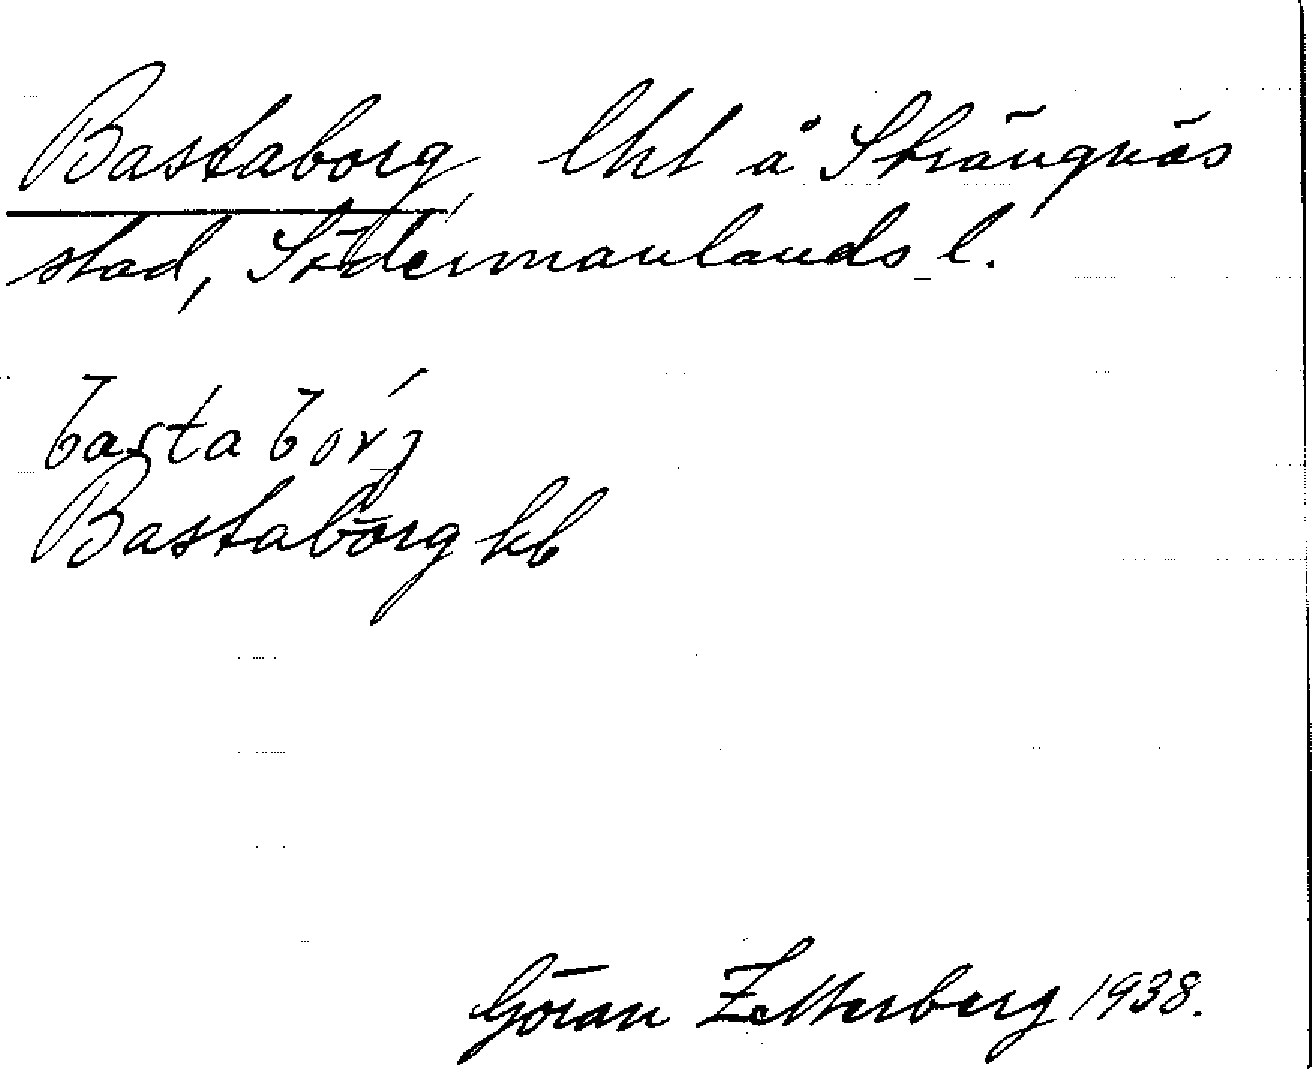 Bastaborg lht å Strängnäs
stad, Södermanlands l.
bastabórj
Bastaborg kb
Göran Zetterberg 1938.